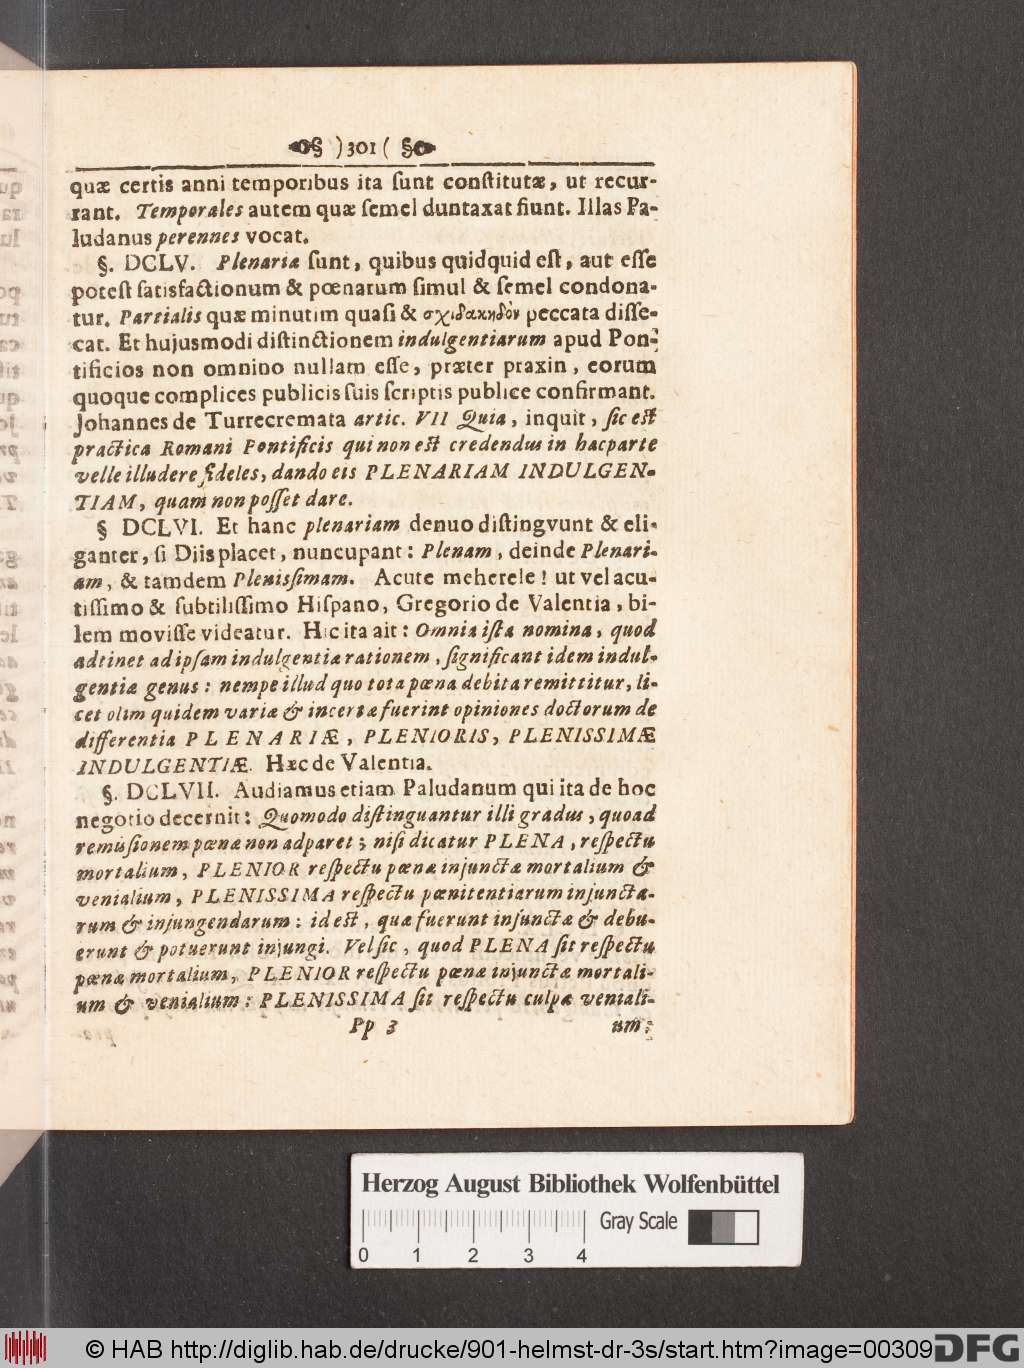 )301(
quæ certis anni temporibus ita ſunt conſtitutæ, ut recur-
rant. Temporales autem quæ ſemel duntaxat fiunt. Illas Pa-
ludanus perennes vocat.
§. DCLV. Plenaria ſunt, quibus quidquid eſt, aut eſſe
poteſt ſatisfactionum & pœnarum ſimul & ſemel condona-
tur. Partialis quæ minutim quaſi & σχιδακηδὸν peccata diſſe-
cat. Et hujusmodi diſtinctionem indulgentiarum apud Pon-
tificios non omnino nullam eſſe, præter praxin, eorum
quoque complices publicis ſuis ſcriptis publice confirmant.
Johannes de Turrecremata artic. VII Quia, inquit, ſic eſt
practica Romani Pontificis qui non eſt credendus in hac parte
velle illudere fideles, dando eis PLENARIAM INDULGEN-
TIAM, quam non poſſet dare.
§ DCLVI. Et hanc plenariam denuo diſtingvunt & eli-
ganter, ſi Diis placet, nuncupant: Plenam, deinde Plenari-
am, & tamdem Pleniſſimam. Acute meherele! ut vel acu-
tiſſimo & ſubtiliſſimo Hiſpano, Gregorio de Valentia, bi-
lem moviſſe videatur. Hic ita ait: Omnia iſta nomina, quod
adtinet ad ipſam indulgentiæ rationem, ſignificant idem indul-
gentiæ genus: nempe illud quo tota pœna debita remittitur, li-
cet olim quidem variæ & incertæ fuerint opiniones doctorum de
differentia PLENARIÆ, PLENIORIS, PLENISSIMÆ
INDULGENTIÆ. Hæc de Valentia.
§. DCLVII. Audiamus etiam Paludanum qui ita de hoc
negotio decernit: Quomodo diſtinguantur illi gradus, quoad
remiſſionem pœnæ non adparet; niſi dicatur PLENA, reſpectu
mortalium, PLENIOR reſpectu pœnæ injunctæ mortalium &
venialium, PLENISSIMA reſpectu pœnitentiarum injuncta-
rum & injungendarum: id eſt, quæ fuerunt injunctæ & debu-
erunt & potuerunt injungi. Vel ſic, quod PLENA ſit reſpectu
pœnæ mortalium, PLENIOR reſpectu pœnæ injunctæ mortali-
um & venialium: PLENISSIMA ſit reſpectu culpæ veniali-
Pp 3 um:
Herzog August Bibliothek Wolfenbüttel
Gray Scale
0 1 2 3 4
© HAB http://diglib.hab.de/drucke/901-helmst-dr-3s/start.htm?image=00309
DFG